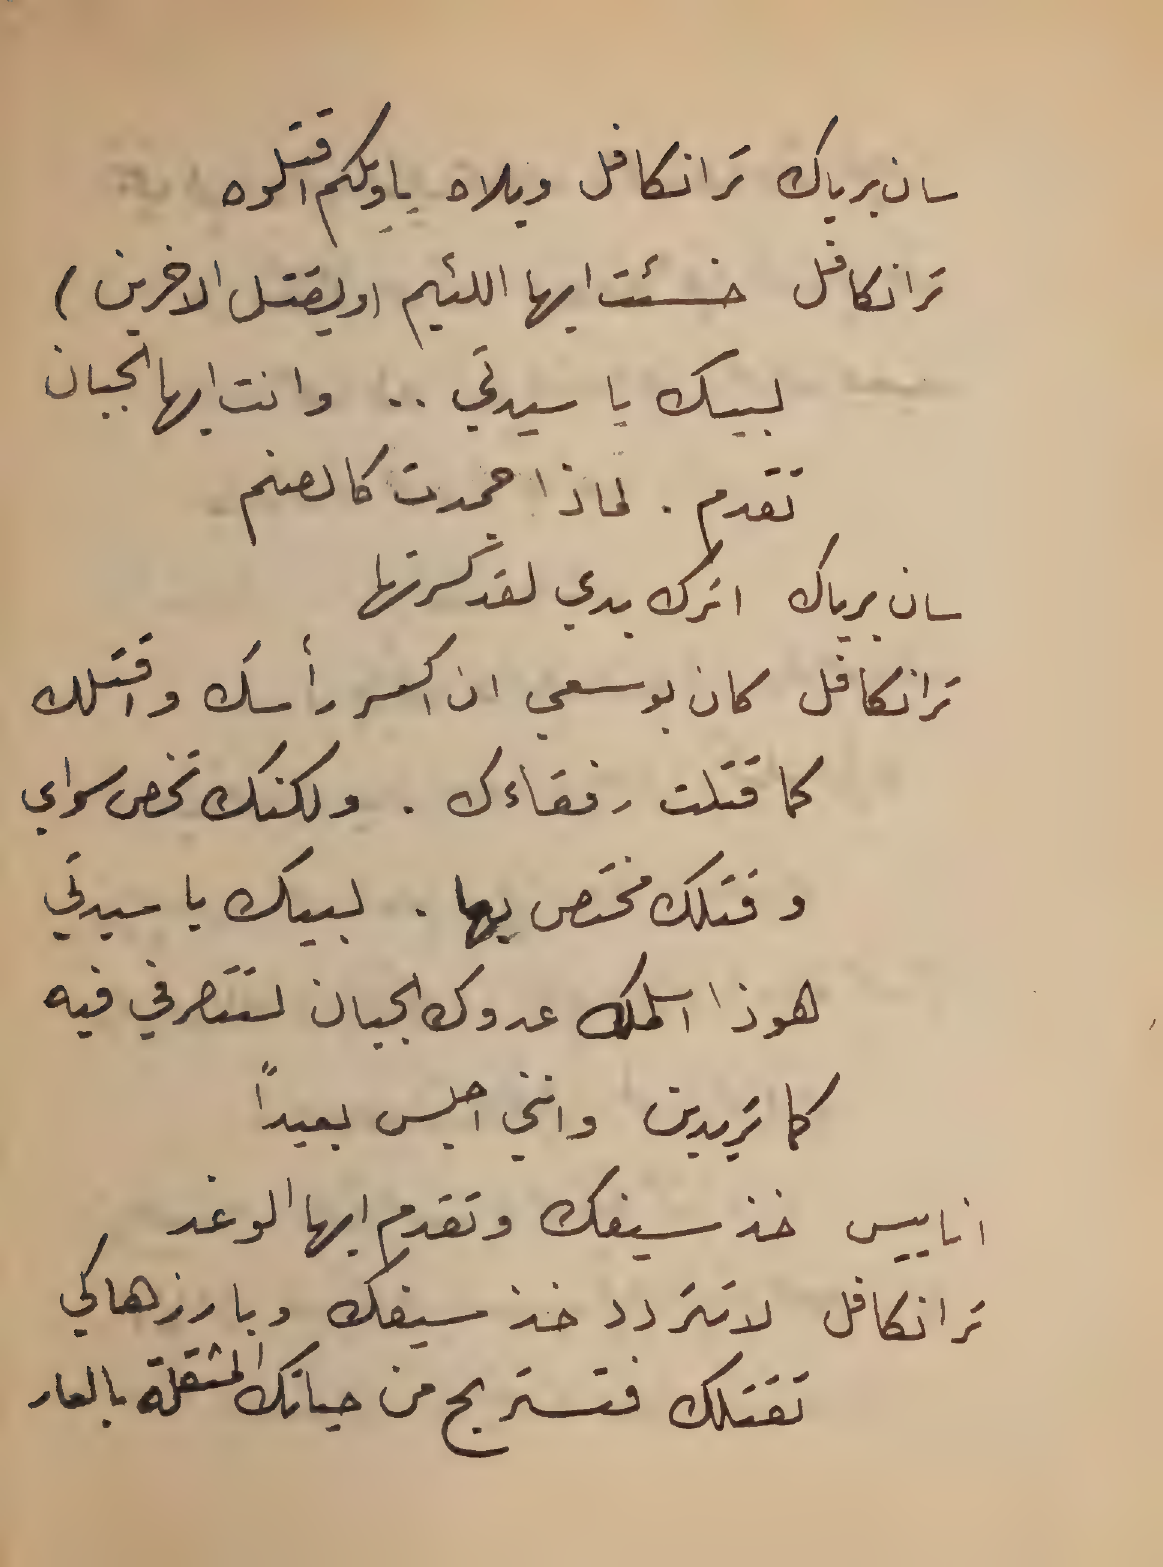 سان برياك ترانكافل ويلاه ياويلكم اقتلوه
ترانكافل خسئت ايها اللئيم (ويقتل الاخرين)
لبيك يا سيدتي .. وانت ايها الجبان
تقدم . لماذا جمدت كالصنم
سان برياك اترك يدي لقد كسرتها
ترانكافل كان بوسعي ان اكسر رأسك واقتلك
كما قتلت رفقاءك . ولكنك تخص سواي
وقتلك مختص بها . لبيك يا سيدتي
هوذا اسلمك عدوك الجبان لتتصرفي فيه
كما تريدين وانني اجلس بعيداً
اناييس خذ سيفك وتقدم ايها الوغد
ترانكافل لا تتردد خذ سيفك وبارزها كي
تقتلك فتستريح من حياتك المثقلة بالعار